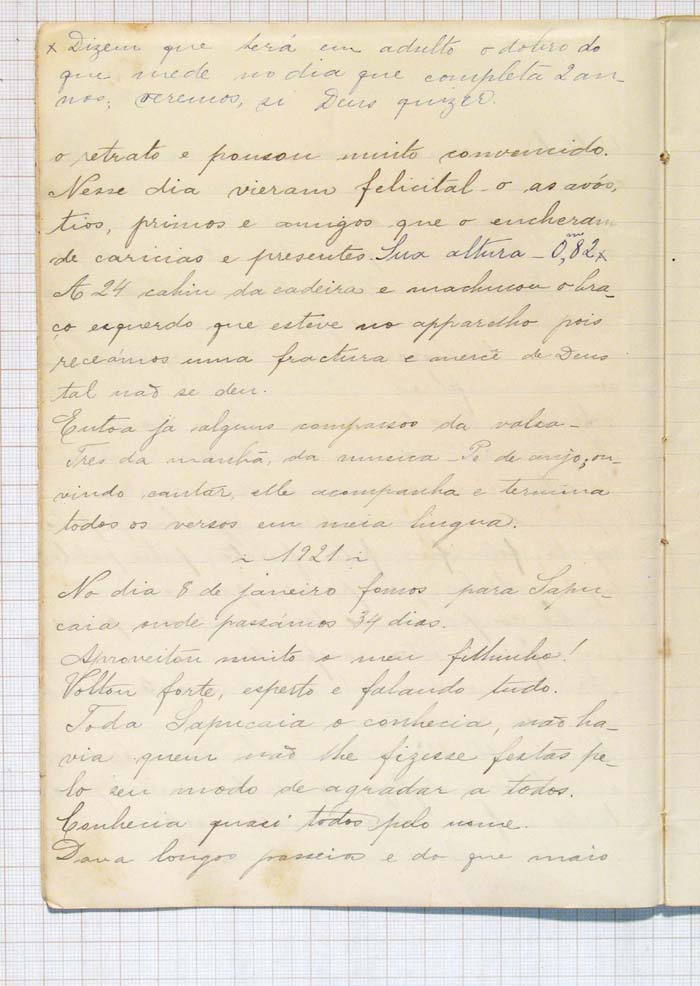 x Dizem que terá em adulto o dobro do
que mede no dia que completa 2 an-
nos; veremos, si Deus quizer.
o retrato e pousou muito convencido.
Nesse dia vieram felicital-o as avós,
tios, primos e amigos que o encheram
de caricias e presentes. Sua altura - 0,82 x
m
A 24 cahiu da cadeira e machucou o bra-
ço esquerdo que esteve no apparelho pois
receámos uma fractura e mercê de Deus
tal não se deu.
Entoa já alguns compassos da valsa -
Tres da manhã, da musica - Pé de anjo, ou-
vindo cantar, elle acompanha e termina
todos os versos em meia lingua.
~ 1921 ~
No dia 8 de janeiro fomos para Sapu-
caia onde passámos 34 dias.
Aproveitou muito o meu filhinho!
Voltou forte, esperto e falando tudo.
Toda Sapucaia o conhecia, não ha-
via quem não lhe fizesse festas pe-
lo seu modo de agradar a todos.
Conhecia quasi todos pelo nome.
Dava longos passeios e do que mais